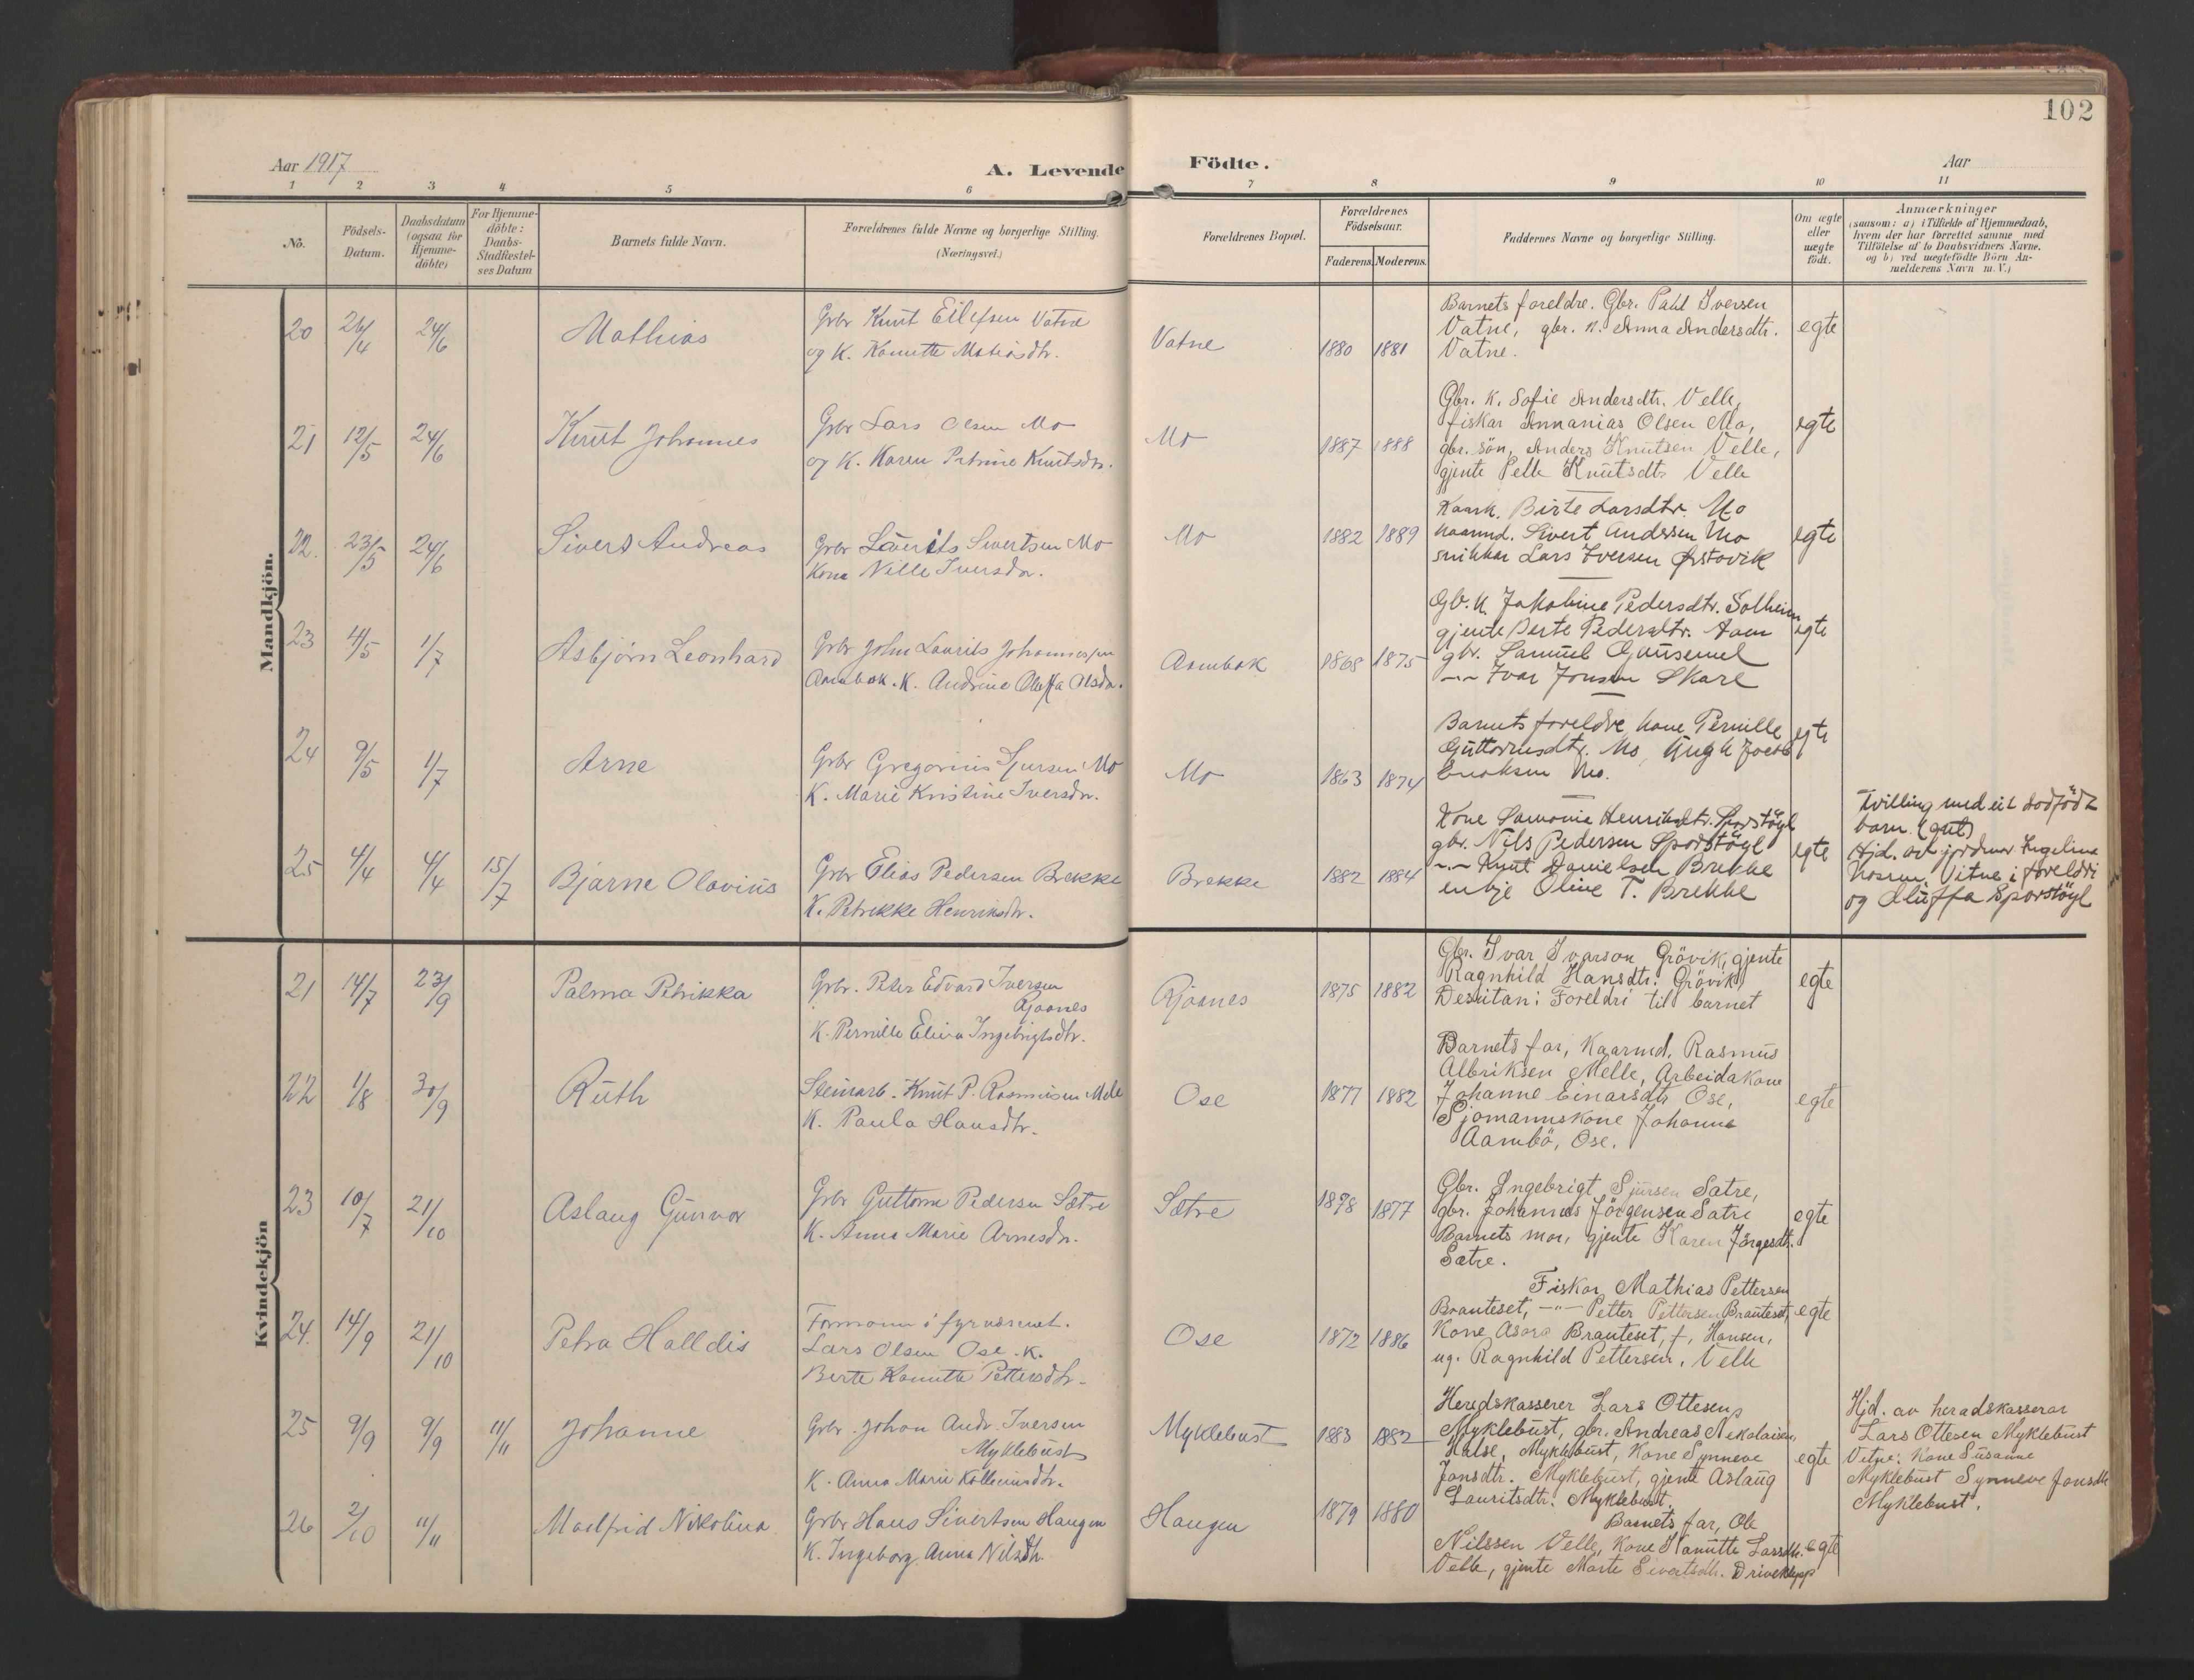 102
Aar 1917
A. Levende Födte.
Aar
1 2 3 4 5 6 7 8 9 10 11
No.
Födsels-
Datum.
Daabsdatum
(ogsaa for
Hjemme-
döbte)
For Hjemme-
döbte:
Daabs-
Stadfæstel-
ses Datum
Barnets fulde Navn.
Forældrenes fulde Navne og borgerlige Stilling.
(Næringsvei.)
Forældrenes Bopæl.
Forældrenes
Födselsaar.
Faderens. Moderens.
Faddernes Navne og borgerlige Stilling.
Om ægte
eller
uægte
födt.
Anmærkninger
(saasom: a) i Tilfælde af Hjemmedaab,
hvem der har forrettet samme med
Tilföielse af to Daabsvidners Navne,
og b) ved uægtefödte Börn An-
melderens Navn m. V.)
Mandkjön.
20 26/4 24/6 Mathias
Grbr Knut Eilefsen Vatne
og K. Kanutte Matiasdtr.
Vatne 1880 1881
Barnets foreldre. Gbr. Paul Iversen
Vatne, gbr. k. Anna Andersdtr.
Vatne.
egte
21 12/5 24/6 Knut Johannes
Grbr Lars Olsen Mo
og K. Karen Petrine Knutsdtr.
Mo 1887 1888
Gbr. K. Sofie Andersdtr. Velle,
fiskar Annanias Olsen Mo,
gbr. sön, Anders Knutsen Velle,
gjente Pelle Knutsdtr Velle
egte
22. 23/5 24/6 Sivert Andreas
Grbr Laurits Sivertsen Mo
Kona Nille Iversdtr.
Mo 1882 1889
Kaark. Birte Larsdtr. Mo
kaarmd. Sivert Andersen Mo
snikkar Lars Iversen Ørstavik
egte
23 4/5 1/7 Asbjørn Leonhard
Grbr John Laurits Johannessen
Aambak. K. Andrine Oluffa Olsdr.
Aambak 1868 1875
Gb. K. Jakobine Pedersdtr. Solheim
gjente Berte Pedersdtr. Aam
gbr. Samuel Gausemel
-"- Ivar Jonsen Skare
egte
24 9/5 1/7 Arne
Grbr Gregorius Sjursen Mo
K. Marie Kristine Iversdr.
Mo 1863 1874
Barnets foreldre, kone Pernille
Guttormsdtr. Mo, Ungk Jacob
Eriksen Mo.
egte
25 4/4 4/4 15/7 Bjarne Olavius
Grbr Elias Pedersen Brekke
K. Petrikke Henriksdtr.
Brekke 1882 1884
Kone Samonie Henriksdtr. Sporstöyl
gbr. Nils Pedersen Sporstöyl
-"- Knut Danielsen Brekke
enkje Oline T. Brekke
egte
Tvilling med eit dödfödt
barn. (gut)
Hjd. av jordmor Ingeline
Vitne: foreldri
og Oluffa Sporstöyl
Kvindekjön
21 14/7 23/9 Palma Petrikka
Grbr. Peter Edvard Iversen
Rjaanes
K. Pernille Elina Ingebrigtsdtr.
Rjaanes 1875 1882
Gbr. Ivar Ivarson Grövik, gjente
Ragnhild Hansdtr. Grövik
Desutan: Foreldri til barnet
egte
22 1/8 30/9 Ruth
Steinarb. Knut P. Rasmusen Melle
K. Paula Hansdtr.
Ose 1877 1882
Barnets far, Kaarmd. Rasmus
Albriksen Melle, Arbeidakone
Johanne Einarsdtr Ose,
Sjömannskone Johanna
Aambö, Ose.
egte
23 10/7 21/10 Aslaug Gunvor
Grbr Guttorm Pedersen Sætre
K. Anna Marie Arnesdr.
Sætre 1878 1877
Gbr. Ingebrigt Sjursen Satre,
gbr. Johannes Jörgensen Satre
Barnets mor, gjente Karen Jörgesdtr.
Sætre.
egte
24. 14/9 21/10 Petra Halldis
Formann i fyrvæsenet.
Lars Olsen Ose. K.
Berte Kanutte Pettersdtr.
Ose 1872 1886
Fiskar Mathias Pettersen
Brauteset, -"- Petter Pettersen Brauteset,
Kone Asora Brauteset, f. Hansen,
ug. Ragnhild Pettersen. Velle
egte
25 9/9 9/9 11/11 Johanne
Grbr. Johan Andr. Iversen
Myklebust
K. Anna Marie
Myklebust 1883 1882
Heredskasserer Lars Ottesen
Myklebust, gbr. Andreas Nikolaisen
Halse, Myklebust, Kone Synneve
Jonsdtr. Myklebust, gjente Aslaug
Lauritsdtr. Myklebust.
egte
Hjd. av heradskasserar
Lars Ottesen Myklebust
Vitne: Kone Susanne
Myklebust Synneve Jonsdtr
Myklebust.
26 2/10 11/11 Malfrid Nikolina
Grbr Hans Sivertsen Haugen
K. Ingeborg Anna Nilsdtr
Haugen 1879 1880
Barnets far, Ole
Nilssen Velle, Kone Kanutte Larsdtr.
Velle, gjente Marte Sivertsdtr. Driveklepp
egte